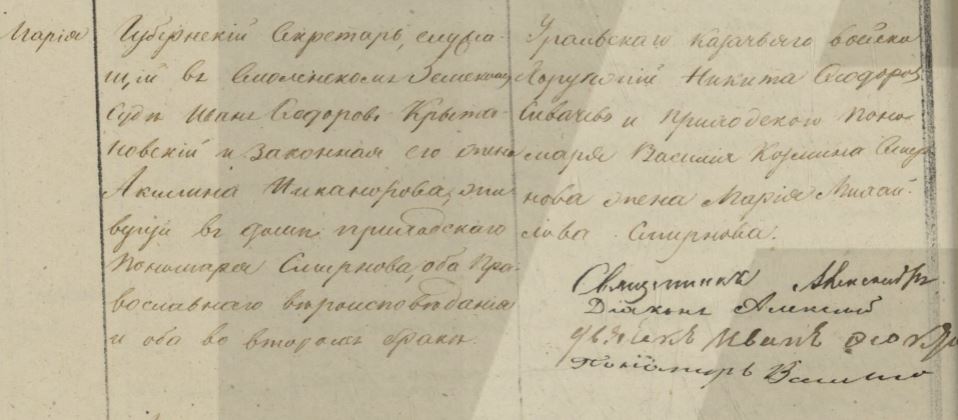 Марія
Губернскій Секретарь, служа-
щій въ Смоленскомъ Земскомъ
Судѣ Иванъ Ѳедоровъ
новскій и законная его жена
Акилина Никанорова, жи-
вущіи въ домѣ приходскаго
Пономаря Смирнова, оба Пра-
вославнаго вѣроисповѣданія
и оба во второмъ бракѣ.
Уральскаго казачьяго войска
Хорунжій Никита Ѳеодоровъ
Сивачевъ и приходскаго Поно-
маря Василія Козмина Смир-
нова жена Марія Михай-
лова Смирнова.
Священникъ Александръ
Діаконъ Алексій
Дьячекъ Иванъ
Пономарь Василій